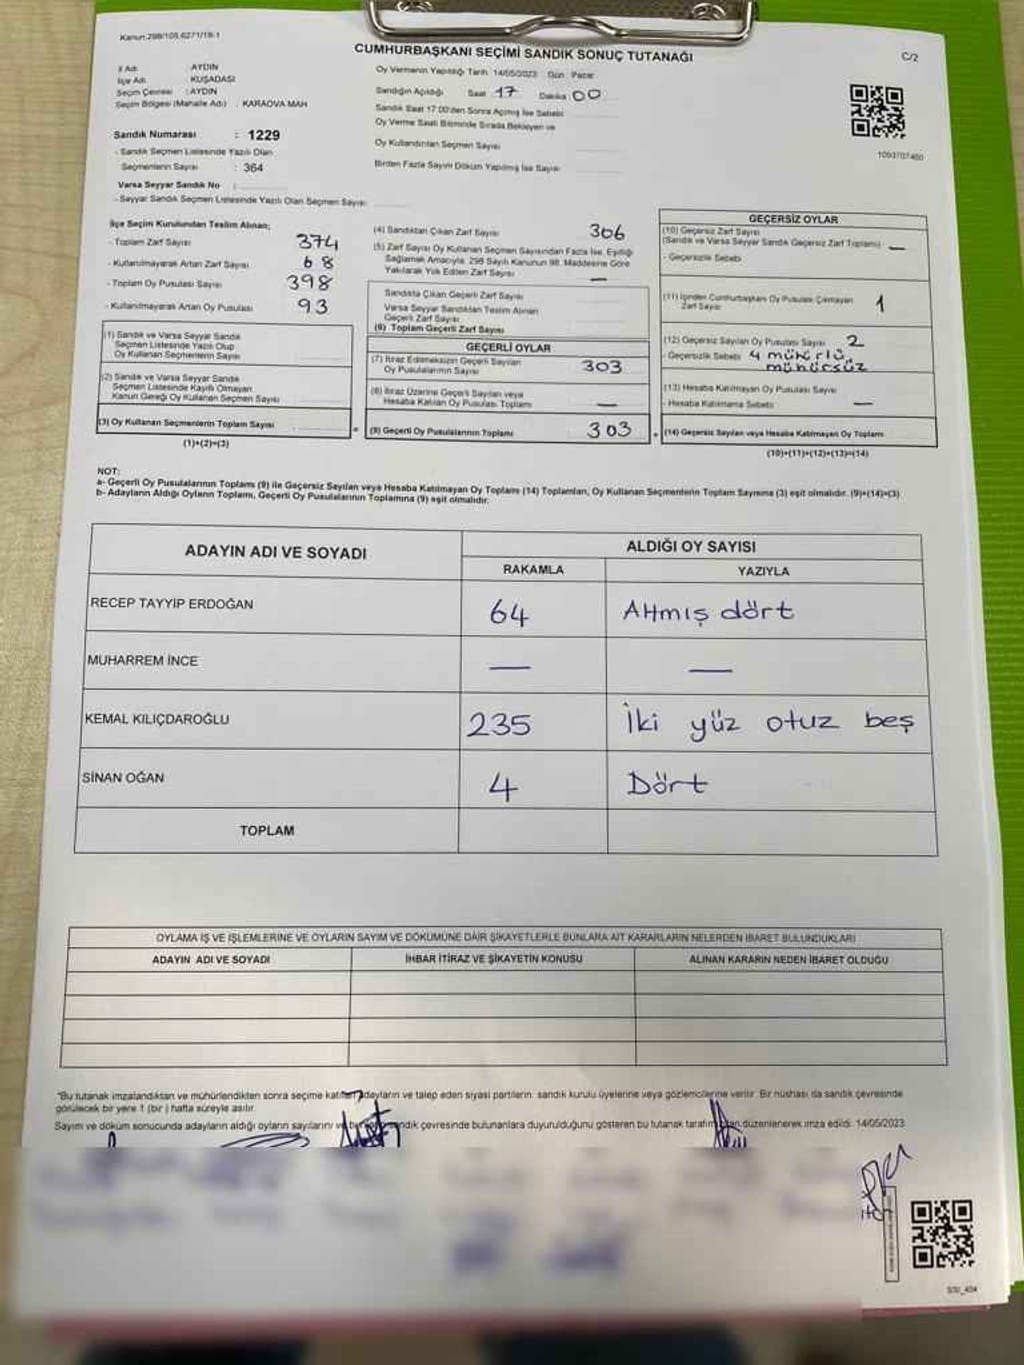 Kanun:298/105,6271/19-1
CUMHURBAŞKANI SEÇİMİ SANDIK SONUÇ TUTANAĞI
C/2
İl Adı : AYDIN
İlçe Adı : KUŞADASI
Seçim Çevresi : AYDIN
Seçim Bölgesi (Mahalle Adı) : KARAOVA MAH
Sandık Numarası : 1229
- Sandık Seçmen Listesinde Yazılı Olan
Seçmenlerin Sayısı : 364
Varsa Seyyar Sandık No :
- Seyyar Sandık Seçmen Listesinde Yazılı Olan Seçmen Sayısı
Oy Vermenin Yapıldığı Tarih 14/05/2023 Gün Pazar
Sandığın Açıldığı Saat 17 Dakika 00
Sandık Saat 17.00'den Sonra Açılmış İse Sebebi
Oy Verme Saati Bitiminde Sırada Bekleyen ve
Oy Kullandırılan Seçmen Sayısı
Birden Fazla Sayım Döküm Yapılmış İse Sayısı
İlçe Seçim Kurulundan Teslim Alınan;
- Toplam Zarf Sayısı 374
- Kullanılmayarak Artan Zarf Sayısı 68
- Toplam Oy Pusulası Sayısı 398
- Kullanılmayarak Artan Oy Pusulası 93
(1) Sandık ve Varsa Seyyar Sandık
Seçmen Listesinde Yazılı Olup
Oy Kullanan Seçmenlerin Sayısı
(2) Sandık ve Varsa Seyyar Sandık
Seçmen Listesinde Kayıtlı Olmayan
Kanun Gereği Oy Kullanan Seçmen Sayısı
(3) Oy Kullanan Seçmenlerin Toplam Sayısı
(1)+(2)=(3)
(4) Sandıktan Çıkan Zarf Sayısı 306
(5) Zarf Sayısı Oy Kullanan Seçmen Sayısından Fazla İse, Eşitliği
Sağlamak Amacıyla, 298 Sayılı Kanunun 98. Maddesine Göre
Yakılarak Yok Edilen Zarf Sayısı —
Sandıkta Çıkan Geçerli Zarf Sayısı
Varsa Seyyar Sandıktan Teslim Alınan
Geçerli Zarf Sayısı
(6) Toplam Geçerli Zarf Sayısı
GEÇERLİ OYLAR
(7) İtiraz Edilmeksizin Geçerli Sayılan
Oy Pusulalarının Sayısı 303
(8) İtiraz Üzerine Geçerli Sayılan veya
Hesaba Katılan Oy Pusulası Toplamı —
(9) Geçerli Oy Pusulalarının Toplamı 303
GEÇERSİZ OYLAR
(10) Geçersiz Zarf Sayısı
(Sandık ve Varsa Seyyar Sandık Geçersiz Zarf Toplamı) —
- Geçersizlik Sebebi
(11) İçinden Cumhurbaşkanı Oy Pusulası Çıkmayan
Zarf Sayısı 1
(12) Geçersiz Sayılan Oy Pusulası Sayısı 2
- Geçersizlik Sebebi 4 mühürlü,
mühürsüz
(13) Hesaba Katılmayan Oy Pusulası Sayısı
- Hesaba Katılmama Sebebi —
(14) Geçersiz Sayılan veya Hesaba Katılmayan Oy Toplamı
(10)+(11)+(12)+(13)=(14)
NOT:
a- Geçerli Oy Pusulalarının Toplamı (9) ile Geçersiz Sayılan veya Hesaba Katılmayan Oy Toplamı (14) Toplamları, Oy Kullanan Seçmenlerin Toplam Sayısına (3) eşit olmalıdır. (9)+(14)=(3)
b- Adayların Aldığı Oyların Toplamı, Geçerli Oy Pusulalarının Toplamına (9) eşit olmalıdır.
ADAYIN ADI VE SOYADI
ALDIĞI OY SAYISI
RAKAMLA YAZIYLA
RECEP TAYYİP ERDOĞAN 64 Altmış dört
MUHARREM İNCE — —
KEMAL KILIÇDAROĞLU 235 İki yüz otuz beş
SİNAN OĞAN 4 Dört
TOPLAM
OYLAMA İŞ VE İŞLEMLERİNE VE OYLARIN SAYIM VE DÖKÜMÜNE DAİR ŞİKAYETLERLE BUNLARA AİT KARARLARIN NELERDEN İBARET BULUNDUKLARI
ADAYIN ADI VE SOYADI İHBAR İTİRAZ VE ŞİKAYETİN KONUSU ALINAN KARARIN NEDEN İBARET OLDUĞU
*Bu tutanak imzalandıktan ve mühürlendikten sonra seçime katılan adayların ve talep eden siyasi partilerin sandık kurulu üyelerine veya gözlemcilerine verilir. Bir nüshası da sandık çevresinde
görülecek bir yere 1 (bir) hafta süreyle asılır.
Sayım ve döküm sonucunda adayların aldığı oyların sayılarını ve sandık çevresinde bulunanlara duyurulduğunu gösteren bu tutanak düzenlenerek imza edildi. 14/05/2023